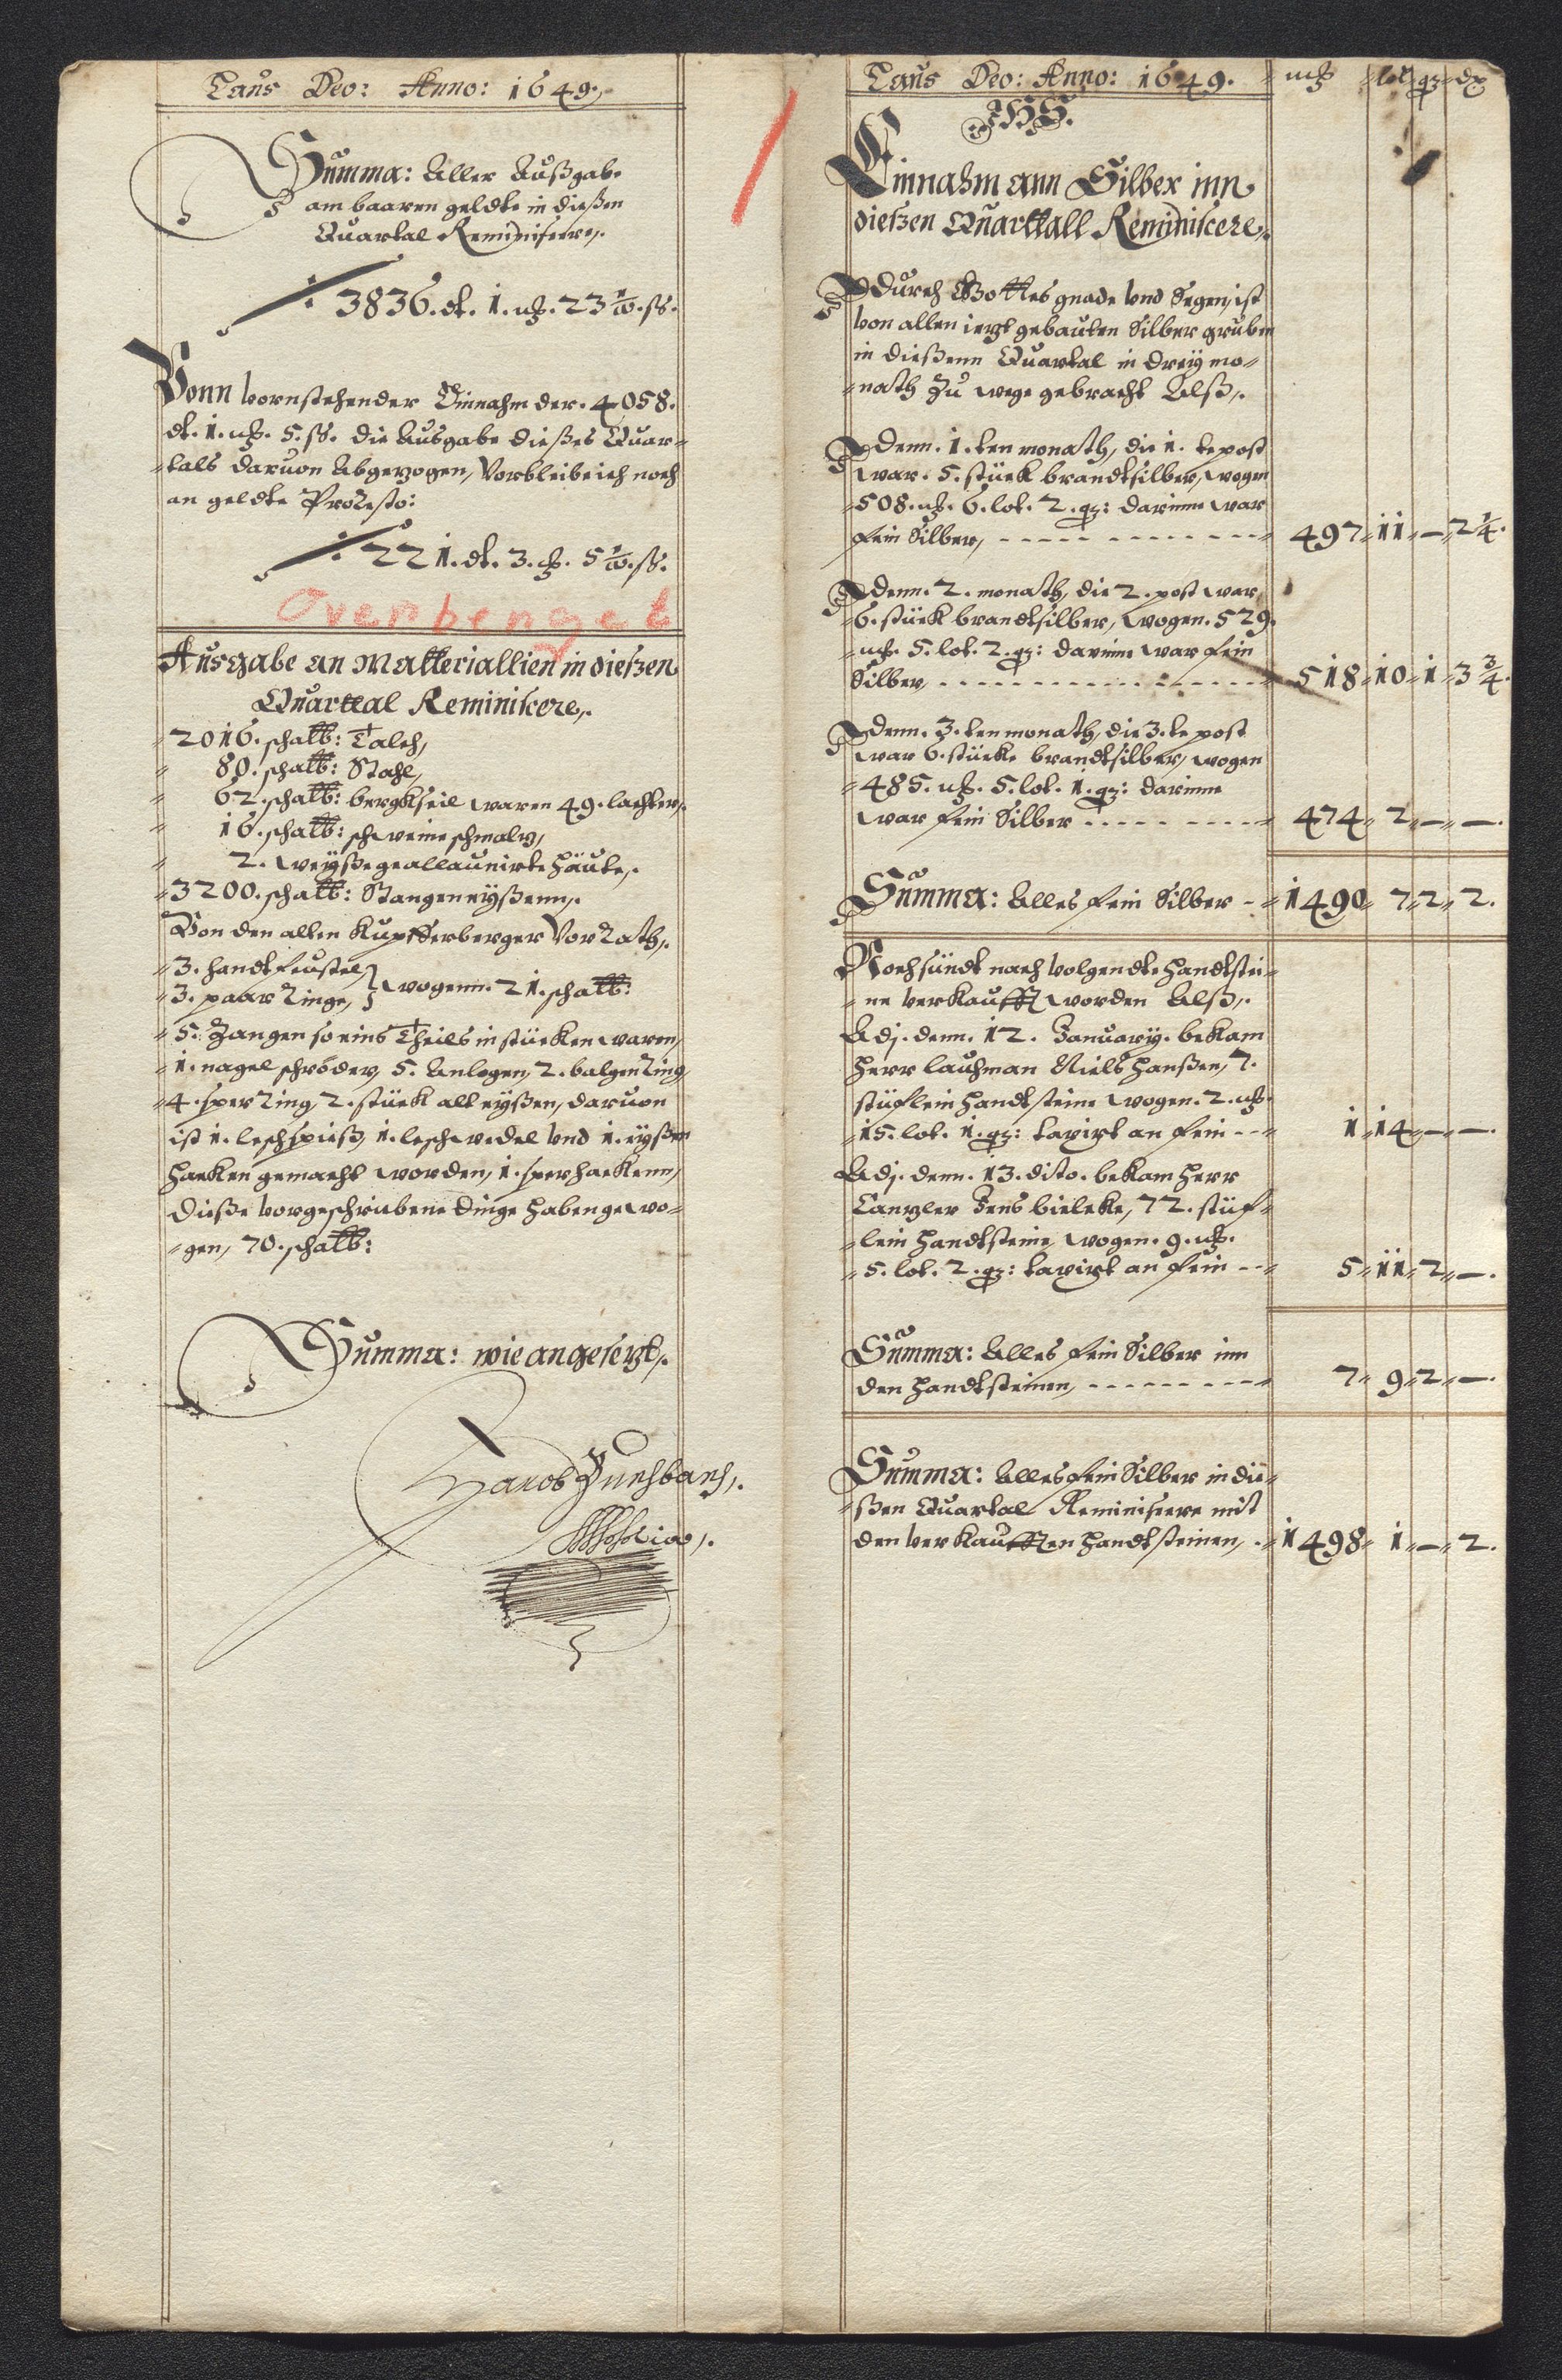 Laus Deo: Anno: 1649.
Summa: Aller Außgabe
am baaren geldte in dießen
Quartal Reminiscere,.
3836. dt. 1. mk. 23 1/10. ß.
Vonn vornstehender Einnahm der. 4058.
dt. 1. mk. 5. ß. die Ausgabe dießes Quar=
=tals daruon Abgezogen, Vorbleibe ich noch
an geldte Pro Resto:
221. dt. 3. mk. 5 1/10. ß.
Overpenget
Ausgabe an Matteriallien in dieszen
Quarttal Reminiscere,.
2016. scha℔: Talch,
80. scha℔: Stahl,
62. scha℔: bergkseil waren 49. lachter,
16. scha℔: schweineschmaltz,
2. weyße geallaunirte häute,.
3200. scha℔: Stangeneyßenn,.
Von den alten Kupfferberger Vorrath,.
3. handtfeustel,
3. paar Ringe, } wogenn. 21. scha℔:
5. Zangen so eins Theils in stücken waren,
1. nagel schröder, 5. Anlogen, 2. balgen Ring,
4. sper Ring, 2. stück alt eyßen, daruon
ist 1. leschspieß, 1. leschwedel vnd 1. eyßen
hacken gemacht worden, 1. sperhackenn,
Dieße vorgeschriebene dinge haben gewo=
=gen, 70. scha℔:
Summa: wie angesetzt,.
Jacob
Laus Deo: Anno: 1649. mk lot qz d
IHS.
Einnahm ann Silber inn
dieszen Quarttall Reminiscere,.
Durch Gottes gnade vnd Segen, ist
von allen ietzt gebauten Silber gruben
in dießenn Quartal in drey mo=
=nath zu wege gebracht Alß,.
Denn. 1. ten monath, die 1. te post
war. 5. stück brandtsilber, wogen
508. mk. 6. lot. 2. qz: darinne war
fein Silber, 497 11 — 2 1/4.
Denn. 2. monath, die 2. post war,
6. stück brandtsilber, wogen. 529.
mk. 5. lot. 2. qz: darinne war fein
Silber, 518 10 1 3 3/4.
Denn. 3. ten monath, die 3. te post
war 6. stücke brandtsilber, wogen
485. mk. 5. lot. 1. qz: darinne
war fein Silber 474 2 — —.
Summa: Alles fein Silber 1490 7 2 2.
Noch sindt nach volgendte handtstei=
=ne verkaufft worden Alß,.
Adj. denn. 12. January. bekam
herr lauhman Niels Hanßen, 7.
stüflein handtsteine wogen. 2. mk.
15. lot. 1. qz: taxirt an fein 1 14 — —.
Adj. denn. 13. dito. bekam herr
Cantzler Jens bielcke, 72. stüf=
=lein handtsteine, wogen. 9. mk.
5. lot. 2. qz: taxirt an fein 5 11 2 —.
Summa: Alles fein Silber inn
den handtsteinen, 7 9 2 —.
Summa: Alles fein Silber in die=
=ßen Quartal Reminiscere mit
den verkaufften handtsteinen, 1498 1 — 2.